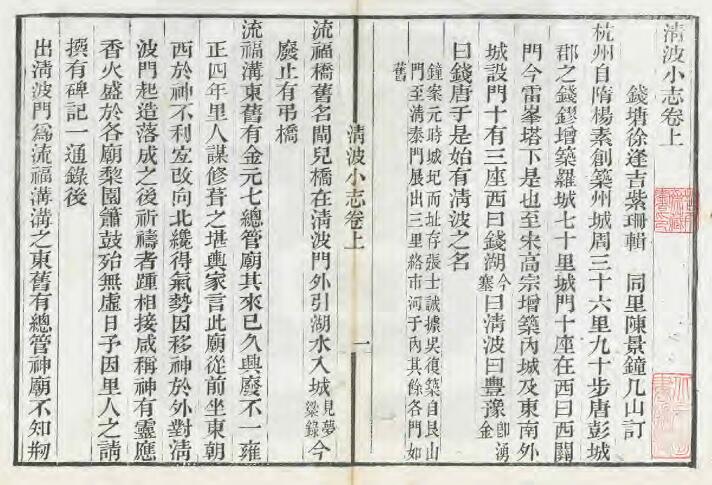 清波小志卷上
錢塘徐逢吉紫珊輯　同里陳景鐘几山訂
杭州自隋楊素創築州城周三十六里九十步唐彭城
郡之錢鏐增築羅城七十里城門十座在西曰西關
門今雷峯塔下是也至宋高宗增築內城及東南外
城設門十有三座西曰錢湖今塞曰清波曰豐豫卽湧金
曰錢唐于是始有清波之名
鐘案元時城圮而址存張士誠據吳復築自艮山
門至清泰門展出三里絡市河于內其餘各門如
舊
清波小志卷上
一
流福橋舊名閘兒橋在清波門外引湖水入城見夢粱錄今
廢止有弔橋
流福溝東舊有金元七總管廟其來已久興廢不一雍
正四年里人謀修葺之堪輿家言此廟從前坐東朝
西於神不利宜改向北纔得氣勢因移神於外對清
波門起造落成之後祈禱者踵相接咸稱神有靈應
香火盛於各廟梨園簫鼓殆無虛日予因里人之請
撰有碑記一通錄後
出清波門爲流福溝溝之東舊有總管神廟不知刱